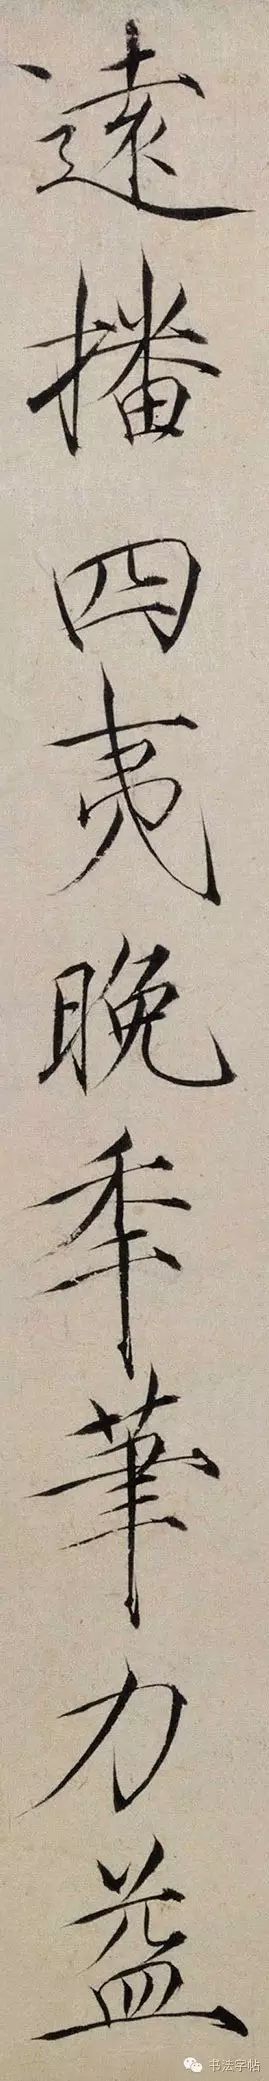 遠播四夷晚季筆力益
书法字帖